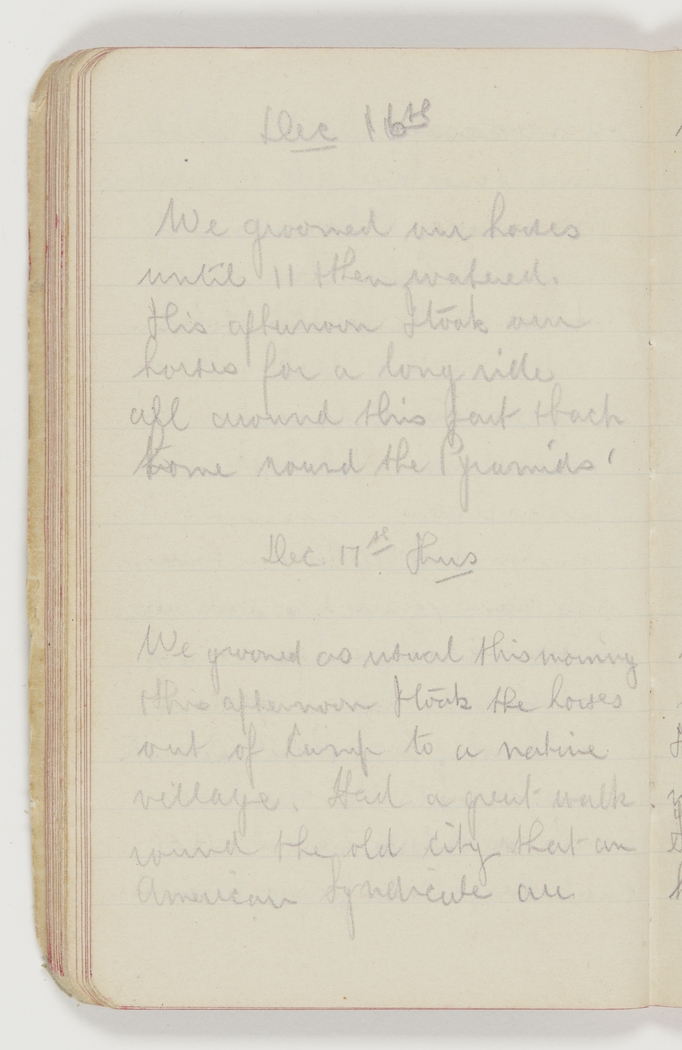 Dec 16th
We groomed our horses
until 11 then watered.
This afternoon I took our
horses for a long ride
all around this part & back
home round the Pyramids
Dec 17th Thus
We groomed as usual this morning
this afternoon I took the horses
out of Camp to a native
village. Had a great walk
round the old city that an
American Syndicate are